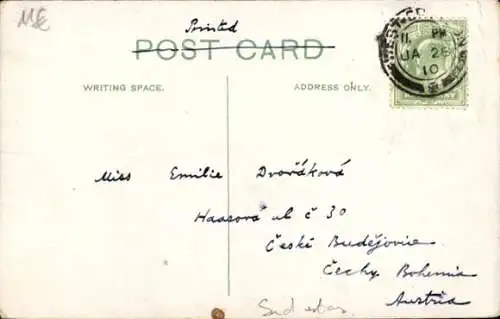 Printed
POST CARD
WRITING SPACE.
ADDRESS ONLY.
11 PM
JA 26
10
Miss Emilie Dvořáková
Haasová ul č 30
České Budějovie
Čechy Bohemia
Austria